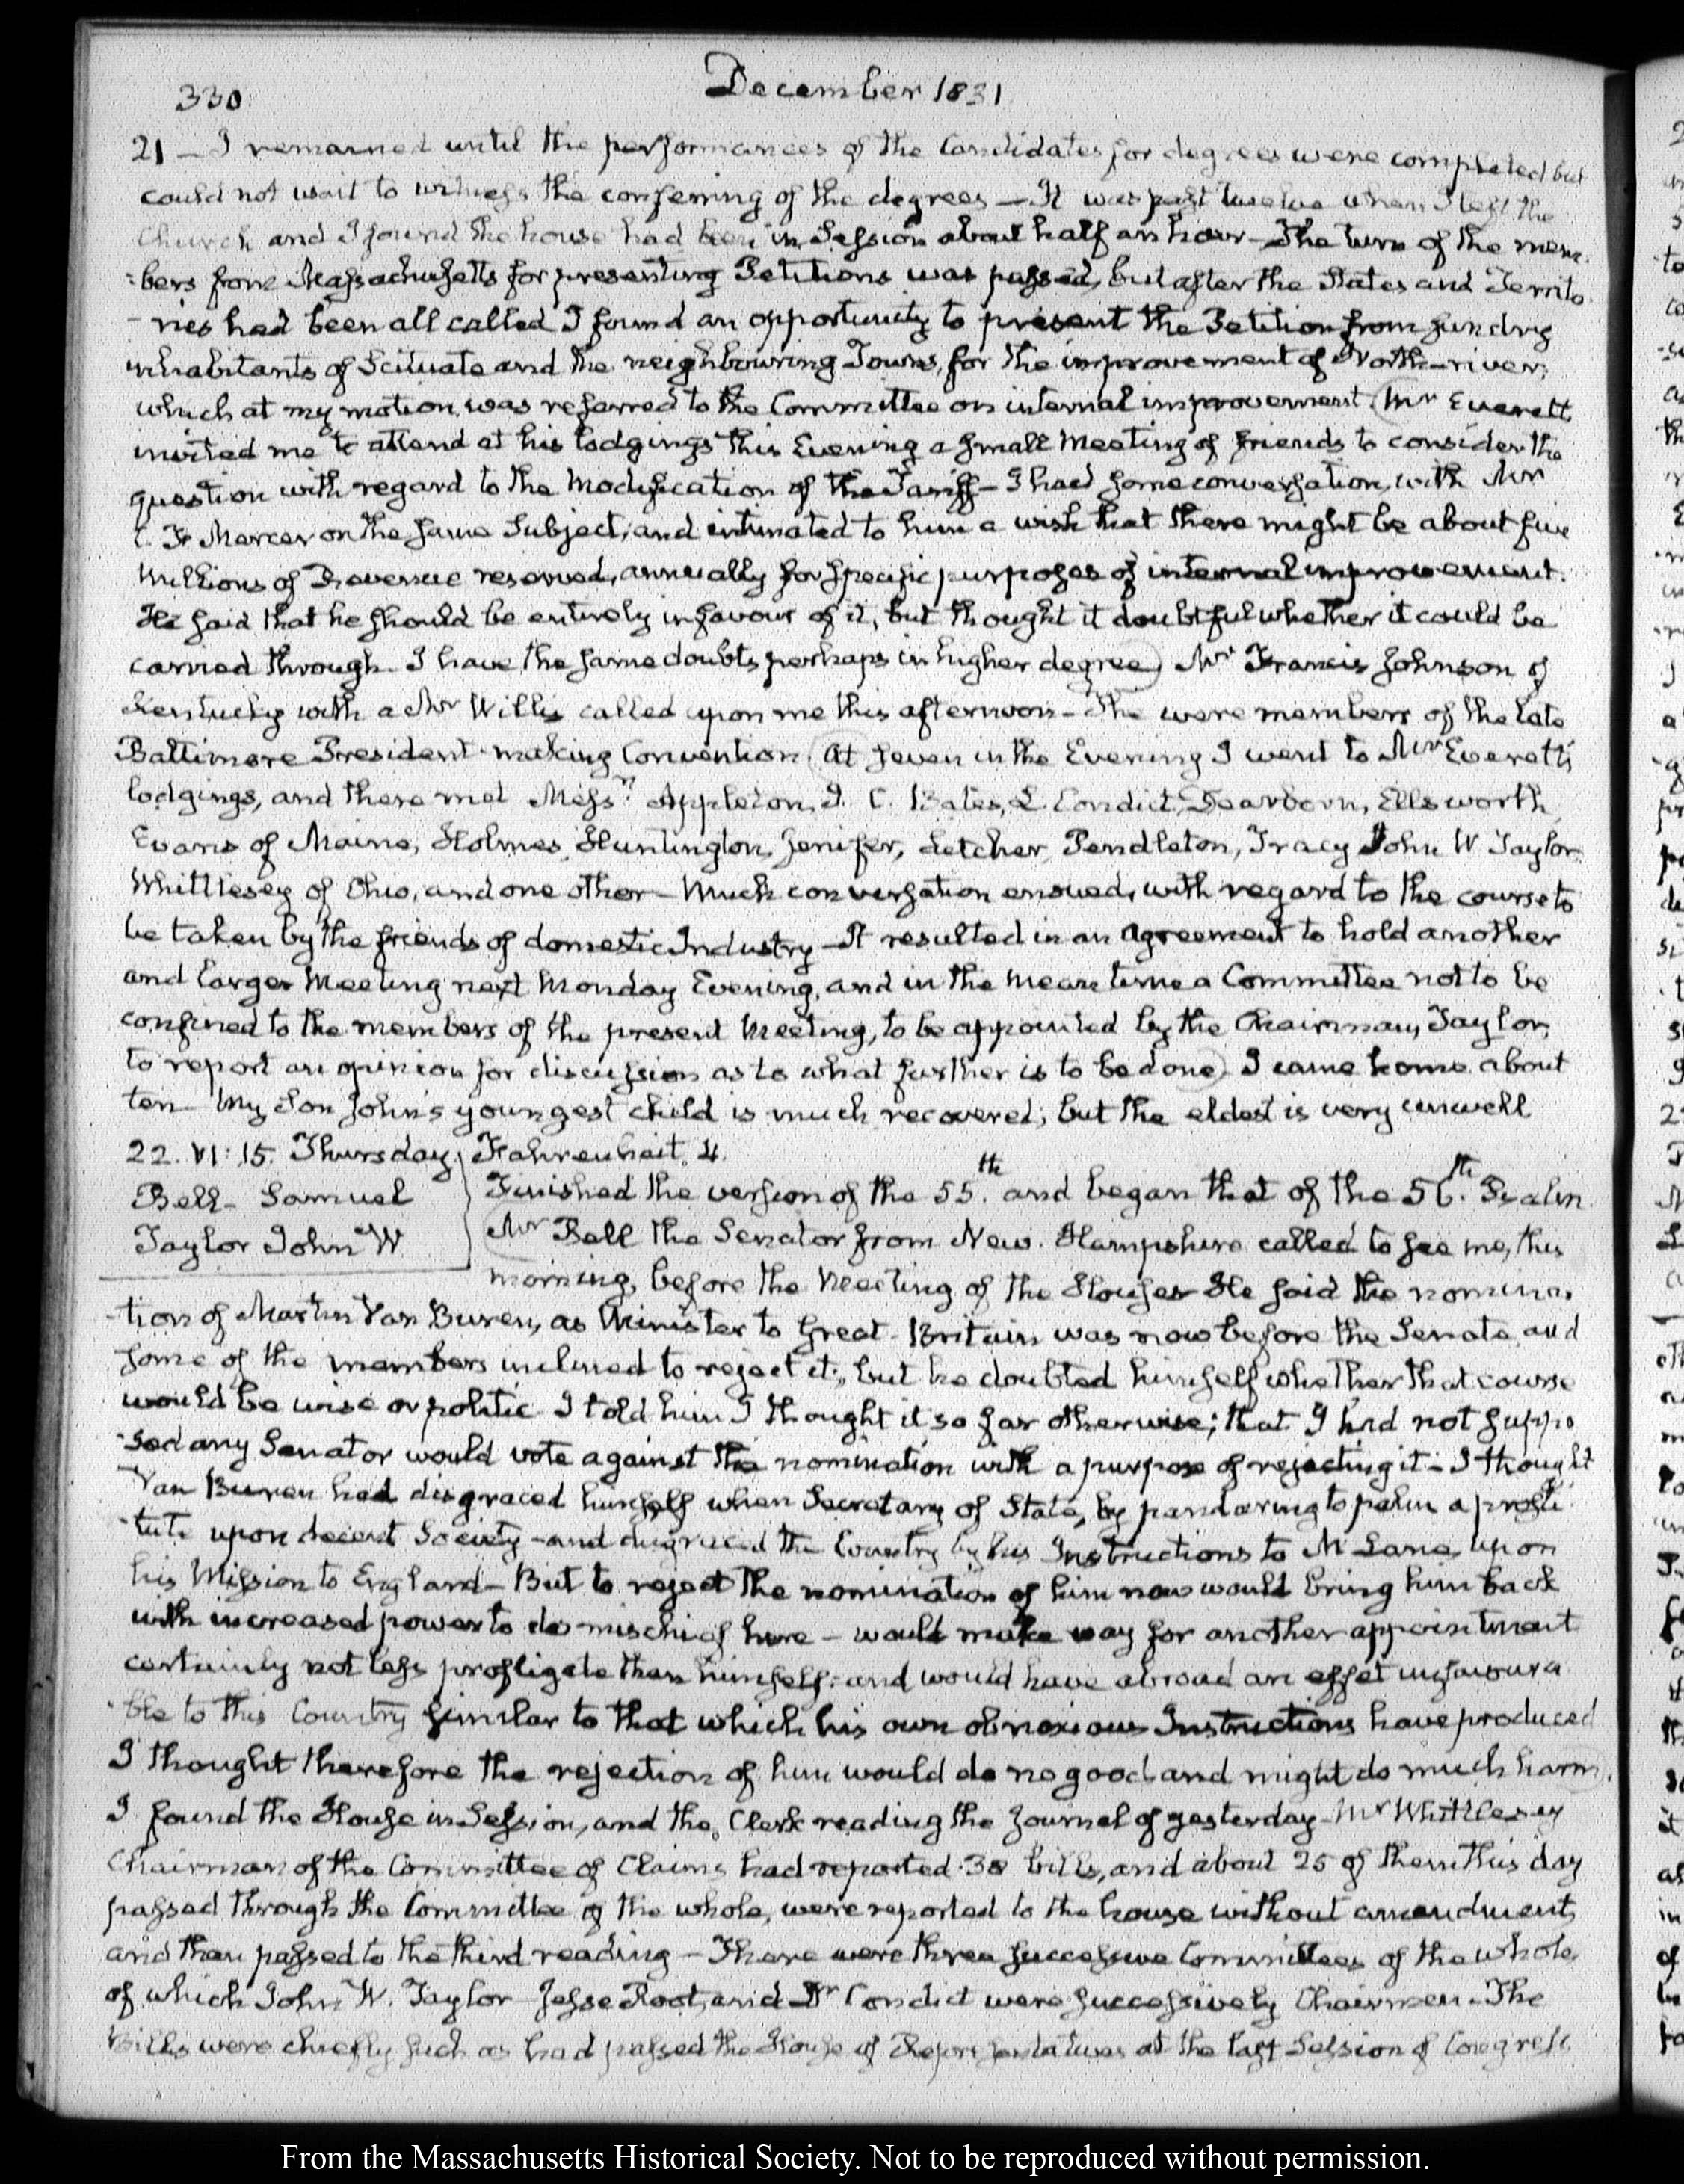 330
December 1831
21 — I remained until the performances of the Candidates for degrees were completed but
could not wait to witness the conferring of the degrees — It was past twelve when I left the
Church and I found the house had been in Session about half an hour — The turn of the mem-
-bers from Massachusetts for presenting Petitions was passed, but after the States and Territo-
-ries had been all called I found an opportunity to present the Petition from sundry
inhabitants of Scituate and the neighbouring Towns, for the improvement of North-river;
which at my motion, was referred to the Committee on internal improvement. Mr Everett
invited me to attend at his lodgings this Evening a small Meeting of friends to consider the
question with regard to the Modification of the Tariff — I had some conversation, with Mr
C. F. Mercer on the same Subject, and intimated to him a wish that there might be about five
Millions of Revenue reserved, annually for specific purposes of internal improvement.
He said that he should be entirely in favour of it, but thought it doubtful whether it could be
carried through. I have the same doubts perhaps in higher degree) Mr Francis Johnson of
Kentucky with a Mr Willis called upon me this afternoon — The were members of the late
Baltimore President-making Convention (At seven in the Evening I went to Mr Everett's
lodgings, and there met Messrs Appleton, I. C. Bates, L. Condict, Dearborn, Ellsworth,
Evans of Maine, Holmes, Huntington, Jenifer, Letcher, Pendleton, Tracy John W Taylor
Whittlesey of Ohio, and one other — Much conversation ensued, with regard to the course to
be taken by the friends of domestic Industry — It resulted in an agreement to hold another
and larger Meeting next Monday Evening, and in the mean time a Committee not to be
confined to the members of the present Meeting, to be appointed by the Chairman, Taylor,
to report an opinion for discussion as to what further is to be done) I came home about
ten — My Son John's youngest child is much recovered; but the eldest is very unwell
22. VI: 15. Thursday Fahrenheit. 4.
Bell — Samuel
Taylor John W
Finished the version of the 55.th and began that of the 56.th Psalm.
(Mr Bell the Senator from New-Hampshire called to see me, this
morning, before the Meeting of the Houses. He said the nomina-
-tion of Martin Van Buren, as Minister to Great-Britain was now before the Senate, and
some of the members inclined to reject it; but he doubted himself whether that course
would be wise or politic. I told him I thought it so far otherwise; that I had not suppo-
-sed any Senator would vote against the nomination with a purpose of rejecting it — I thought
Van Buren had disgraced himself when Secretary of State, by pandering to palm a prosti-
-tute upon decent Society — and disgraced the Country by his Instructions to McLane, upon
his Mission to England — But to reject the nomination of him now would bring him back
with increased power to do mischief here — would make way for another appointment
certainly not less profligate than himself: and would have abroad an effect unfavoura-
-ble to this Country similar to that which his own obnoxious Instructions have produced
I thought therefore the rejection of him would do no good and might do much harm).
I found the House in Session, and the Clerk reading the Journal of yesterday — Mr Whittlesey
Chairman of the Committee of Claims had reported 38 bills, and about 25 of them this day
passed through the Committee of the whole, were reported to the house without amendment,
and then passed to the third reading — There were three successive Committees of the whole,
of which John W. Taylor Jesse Root, and Dr Condict were successively Chairmen — The
Bills were chiefly such as had passed the House of Representatives at the last Session of Congress
From the Massachusetts Historical Society. Not to be reproduced without permission.